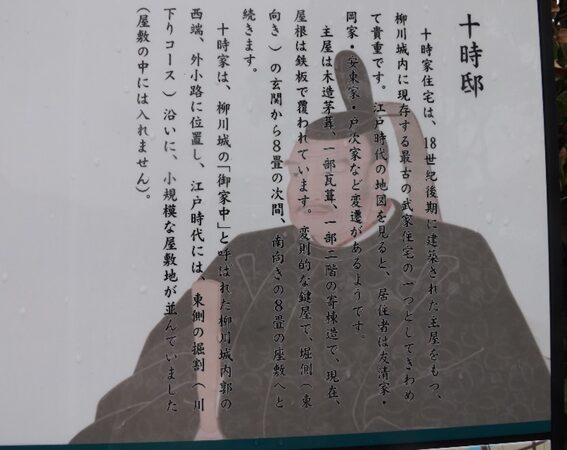 十時邸
十時家住宅は、18世紀後期に建築された主屋をもつ、
柳川城内に現存する最古の武家住宅の一つとしてきわめ
て貴重です。江戸時代の地図を見ると、居住者は友清家・
岡家・安東家・戸次家など変遷があるようです。
主屋は木造茅葺、一部瓦葺、一部二階の寄棟造で、現在、
屋根は鉄板で覆われています。変則的な鍵屋で、堀側（東
向き）の玄関から8畳の次間、南向きの8畳の座敷へと
続きます。
十時家は、柳川城の「御家中」と呼ばれた柳川城内郭の
西端、外小路に位置し、江戸時代には、東側の掘割（川
下りコース）沿いに、小規模な屋敷地が並んでいました
（屋敷の中には入れません）。